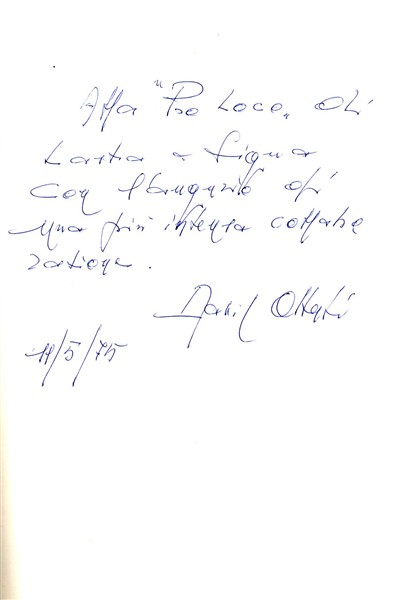 Alla "Pro Loco" di
Lastra a Signa
Con l'augurio di
una più intensa collabo
razione.
11/5/75